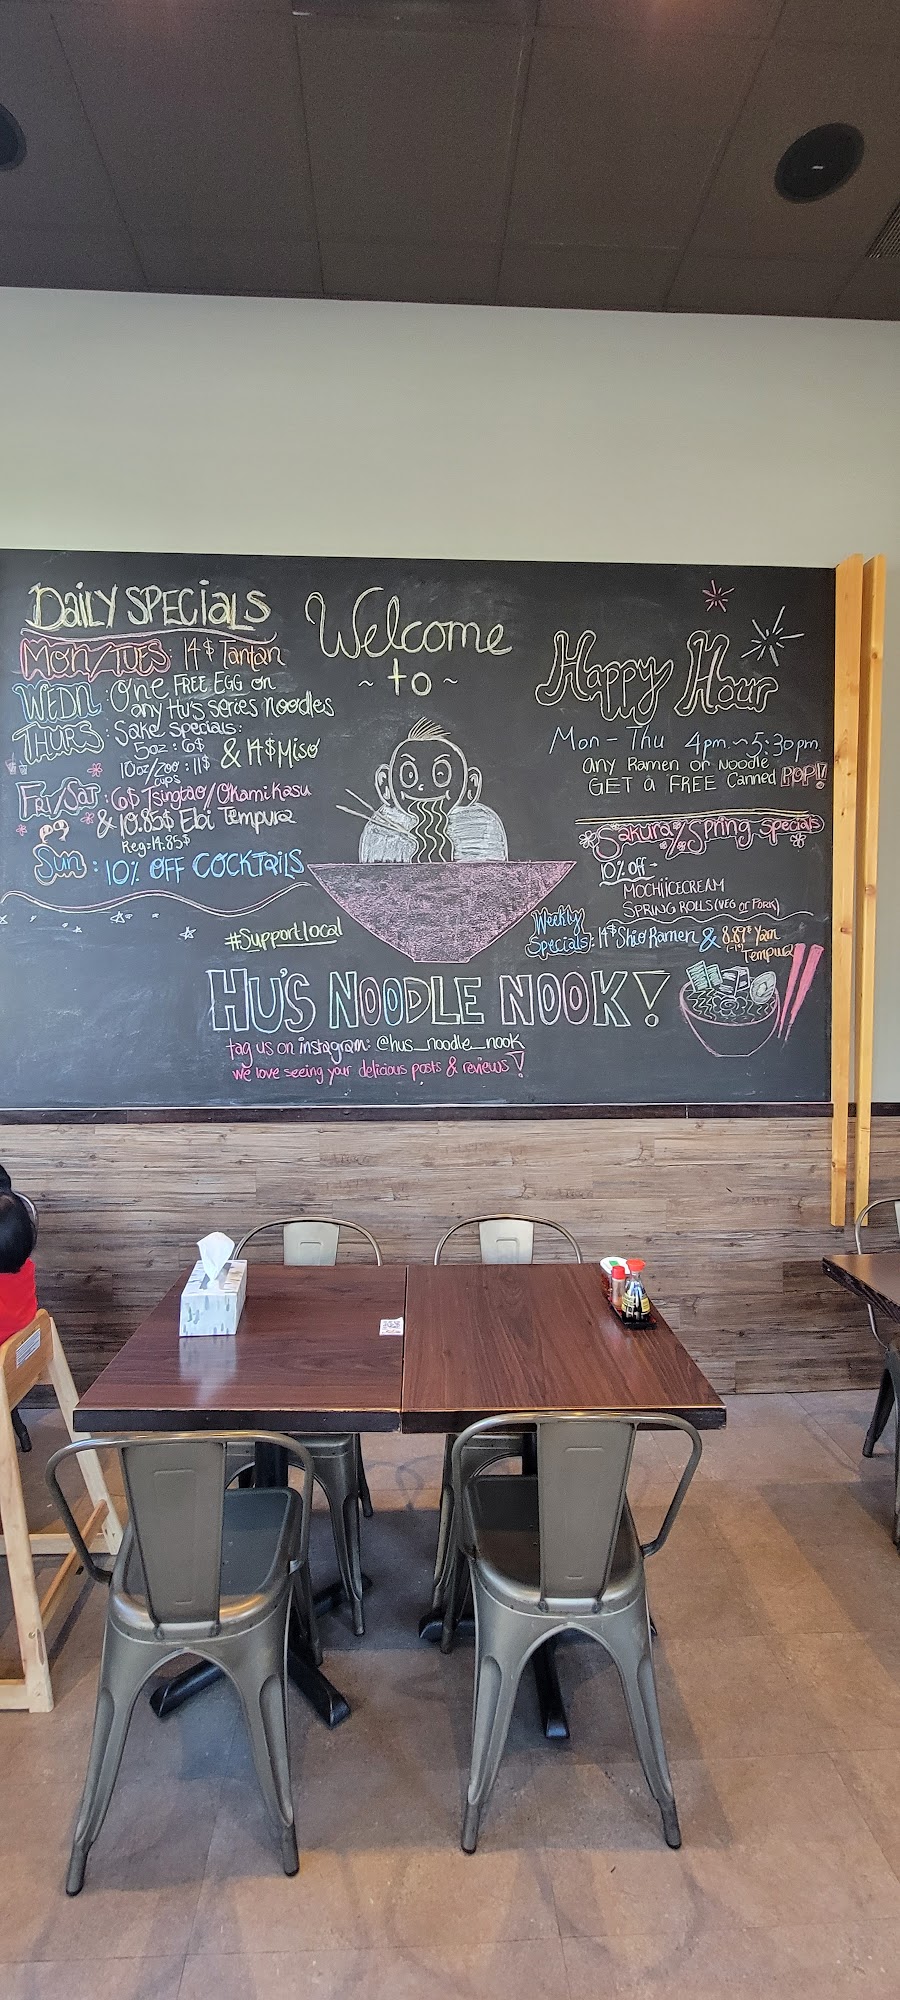 Daily Specials
Mon/Tues: 14$ Tantan
Wedn: One FREE EGG on
any Hu's series noodles
Thurs: Sake specials:
5oz: 6$ & 14$ Miso
10oz/2oo: 11$
cups
Fri/Sat: 6$ Tsingtao/Okamikasu
& 10.85$ Ebi Tempura
Reg=14.85$
Sun: 10% OFF COCKTAILS
#Supportlocal
Welcome
~ to ~
HU'S NOODLE NOOK!
tag us on instagram: @hus_noodle_nook
we love seeing your delicious posts & reviews!
Happy Hour
Mon - Thu 4pm ~ 5:30pm
any Ramen or Noodle
GET a FREE Canned POP!
Sakura/Spring specials
10% off -
MOCHI ICECREAM
SPRING ROLLS (VEG or PORK)
Weekly
Specials: 14$ Shio Ramen & 8.89$ Yam
Tempura